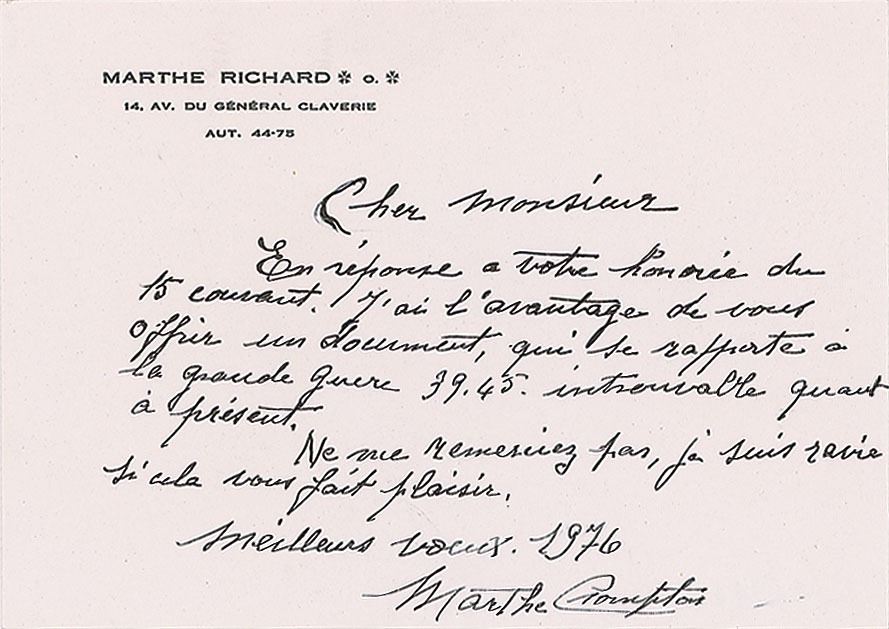 MARTHE RICHARD ✠ O. ✠
14, AV. DU GÉNÉRAL CLAVERIE
AUT. 44-75
Cher Monsieur
En réponse a votre honorée du
15 courant. J'ai l'avantage de vous
offrir un document, qui se rapporte à
la grande guere 39.45. introuvable quant
à présent.
Ne me remerciez pas, je suis ravie
si cela vous fait plaisir.
Meilleurs vœux. 1976
Marthe Crompton